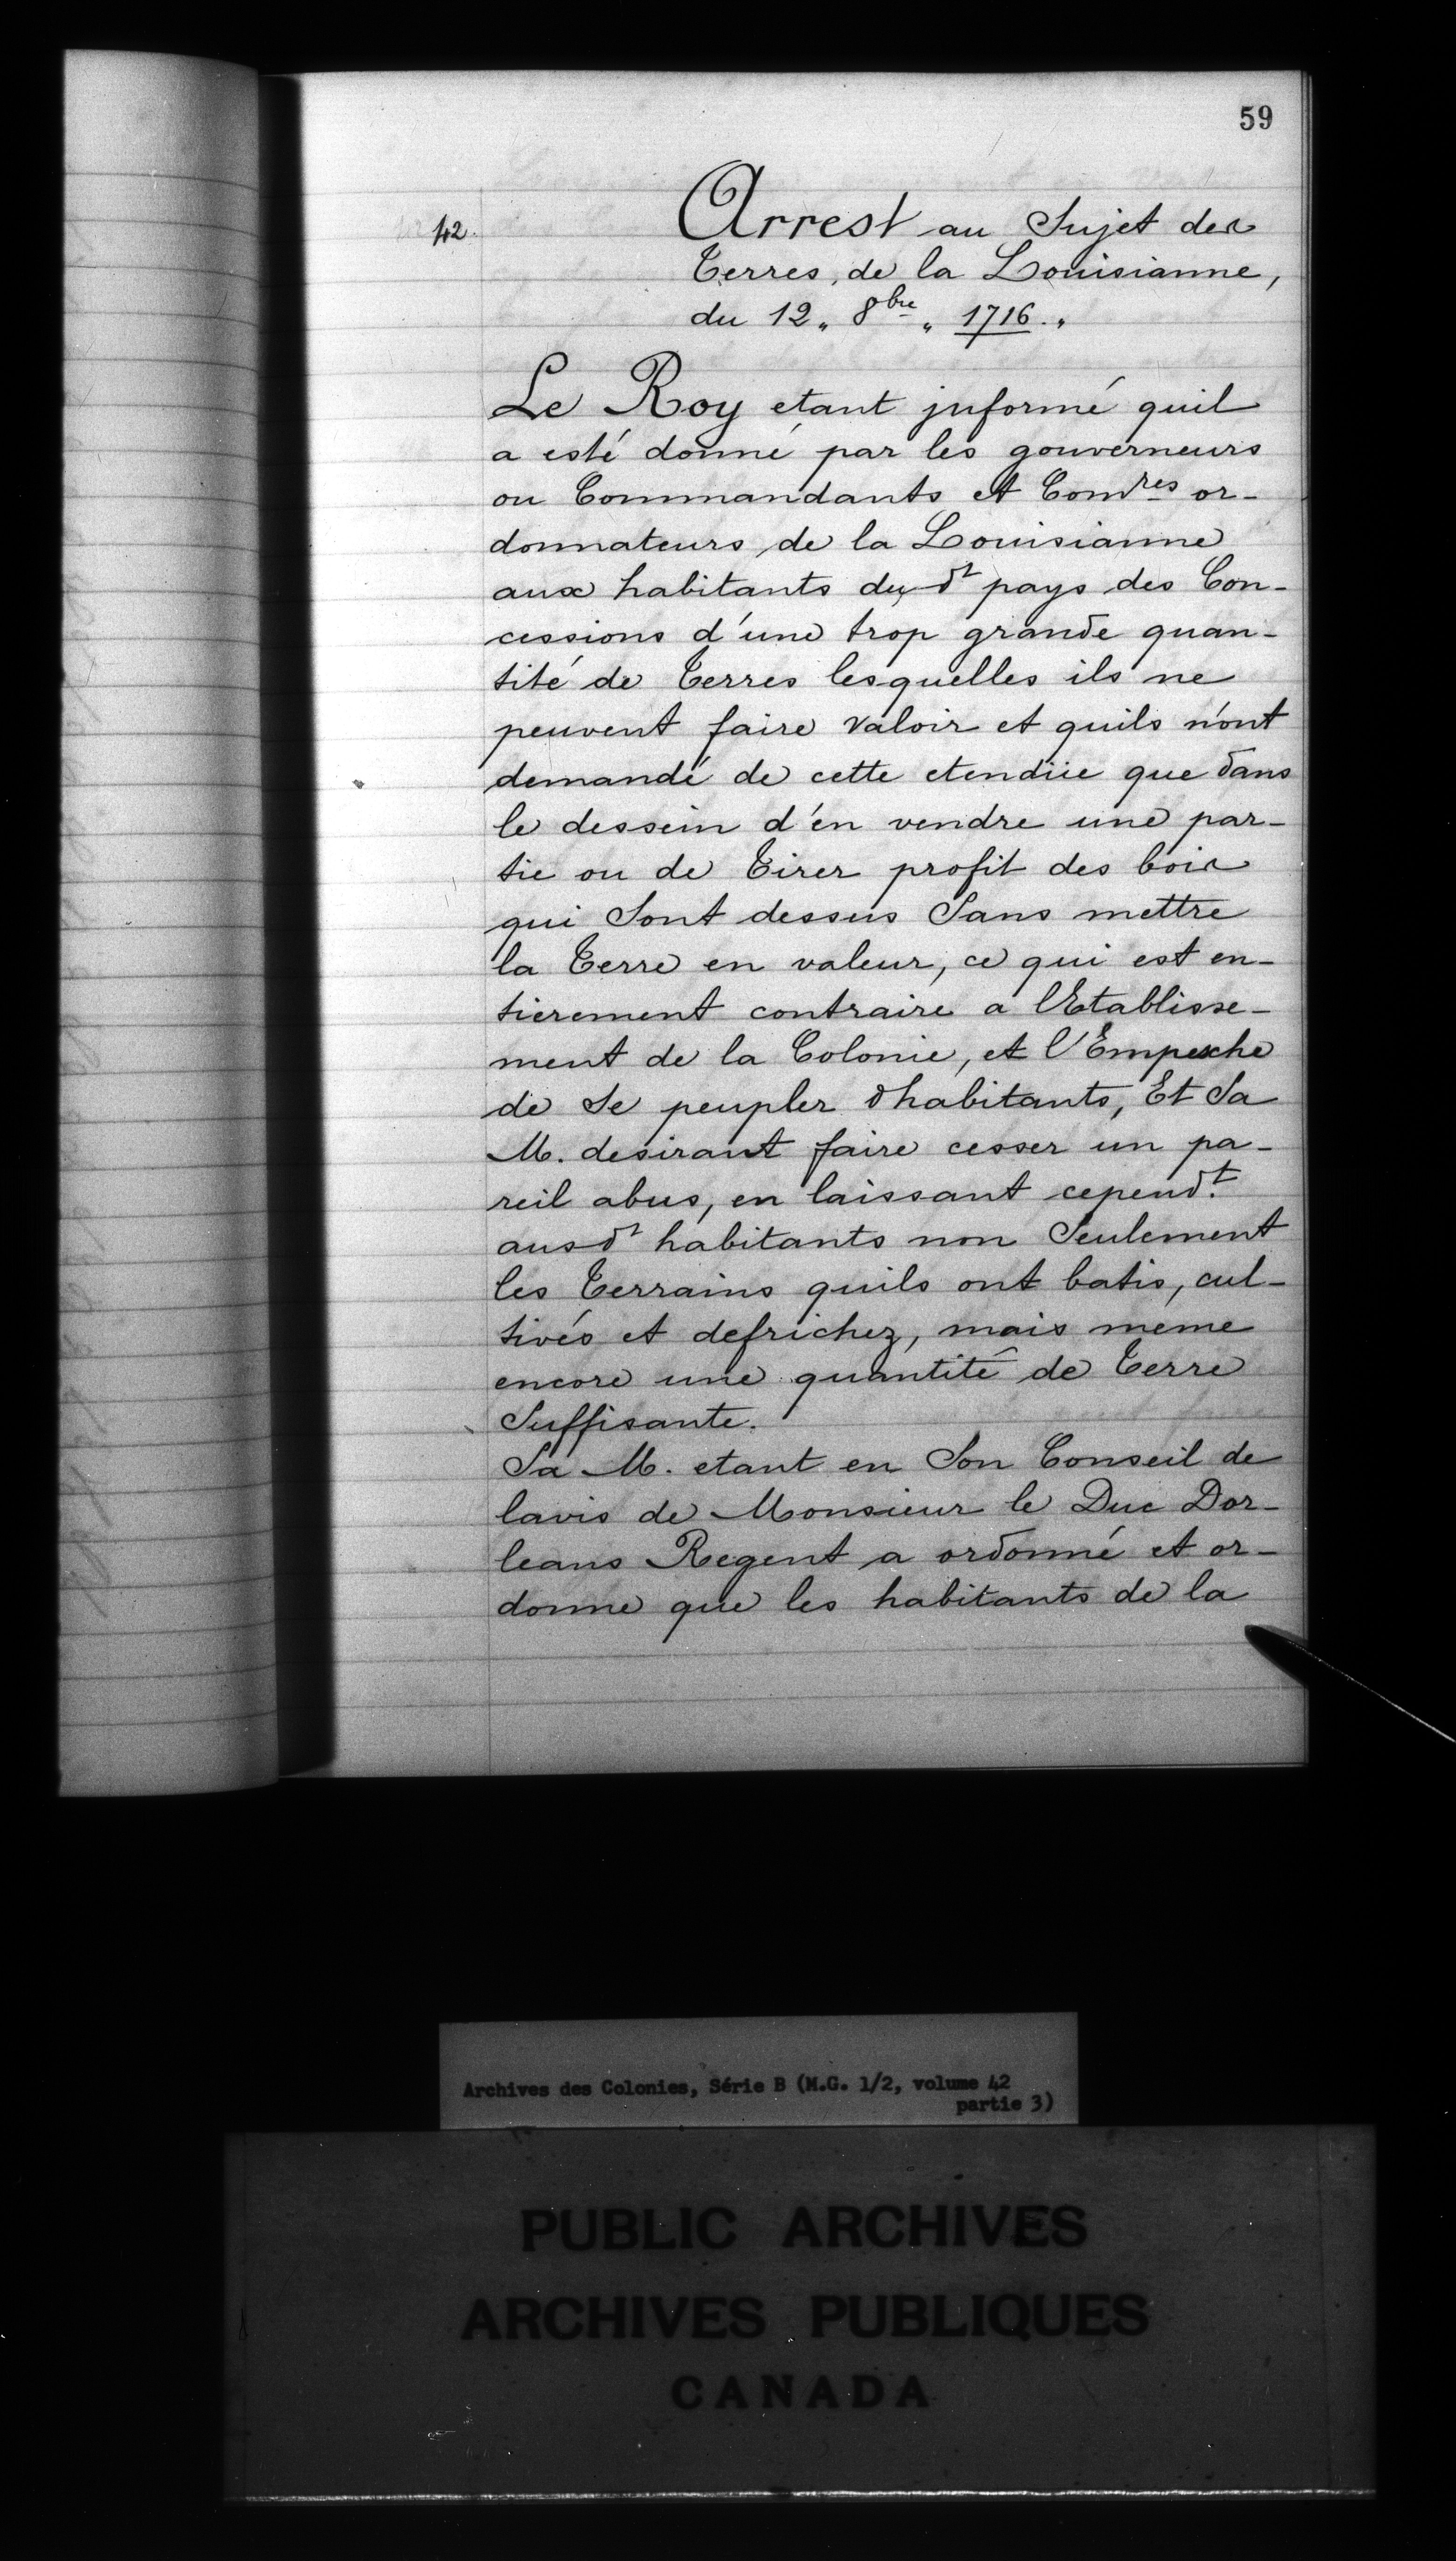 59
42.
Arrest au Sujet des
Terres, de la Louisianne,
du 12 „ 8bre „ 1716 . „
Le Roy etant jnformé quil
a esté donné par les gouverneurs
ou Commandants et Comres or-
donnateurs de la Louisianne
aux habitants du dt pays des Con-
cessions d'une trop grande quan-
tité de Terres lesquelles ils ne
peuvent faire valoir et quils n'ont
demandé de cette etendüe que dans
le dessein d'en vendre une par-
tie ou de Tirer profit des bois
qui Sont dessus Sans mettre
la Terre en valeur, ce qui est en-
tierement contraire a lEtablisse-
ment de la Colonie, et l'Empesche
de Se peupler dhabitants, Et Sa
M. desirant faire cesser un pa-
reil abus, en laissant cependt.
ausdt habitants non Seulement
les Terrains quils ont batis, cul-
tivés et defrichez, mais meme
encore une quantité de Terre
Suffisante.
Sa M. etant en Son Conseil de
lavis de Monsieur le Duc Dor-
leans Regent a ordonné et or-
donne que les habitants de la
Archives des Colonies, Série B (M.G. 1/2, volume 42
partie 3)
PUBLIC ARCHIVES
ARCHIVES PUBLIQUES
CANADA